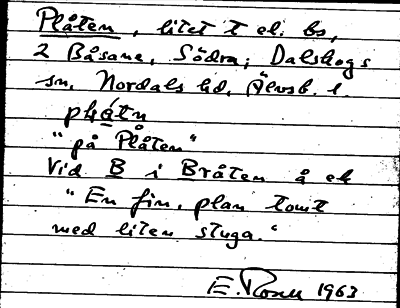 Plåten, litet t el. bs,
2 Båsane, Södra; Dalskogs
sn, Nordals hd, Älvsb. l.
plåtn
"på Plåten"
Vid B i Bråten å ek
"En fin, plan tomt
med liten stuga."
E. 1963